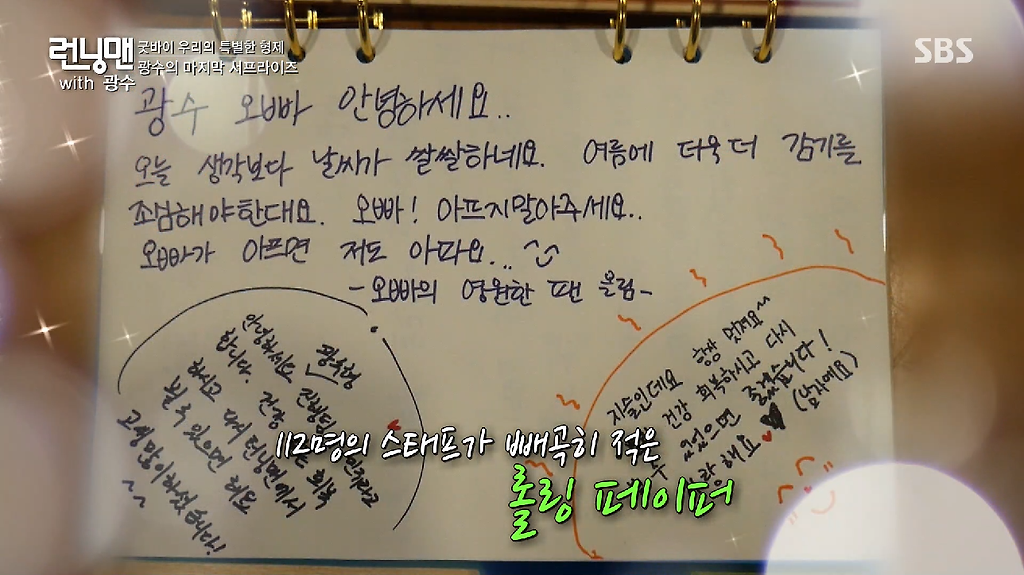 런닝맨
with 광수
굿바이 우리의 특별한 형제
광수의 마지막 서프라이즈
SBS
광수 오빠 안녕하세요..
오늘 생각보다 날씨가 쌀쌀하네요. 여름에 더욱더 감기를
조심해야한대요. 오빠! 아프지말아주세요..
오빠가 아프면 저도 아파요...
-오빠의 영원한 팬 올림-
광수형
안녕하십니까
합니다. 건강 회복
하시고 다시 런닝맨에서
뵐 수 있으면 해요
고생많이하셨습니다!
~~
항상 멋져요^^
지슬인데요
건강 회복하시고 다시
수 있었으면 좋겠습니다!
해요 ♥♥ (남자에요)
112명의 스태프가 빼곡히 적은
롤링 페이퍼